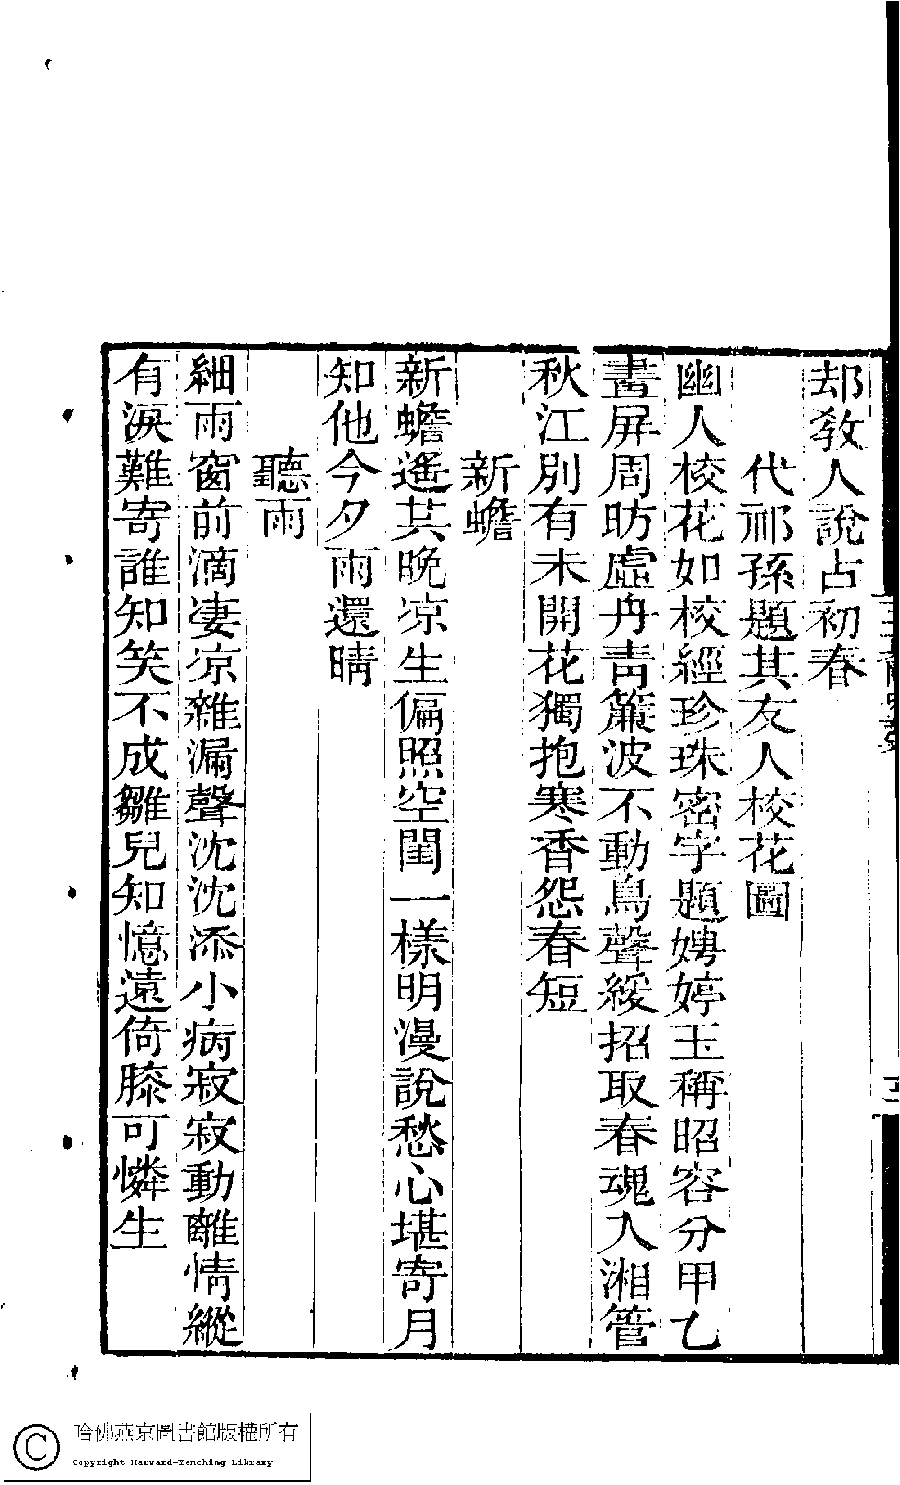 却敎人說占初春
代祁孫題其友人校花圖
幽人校花如校經珍珠密字題娉婷玉稱昭容分甲乙
畫屏周昉虛丹靑簾波不動鳥聲緩招取春魂入湘管
秋江別有未開花獨抱寒香怨春短
新蟾
新蟾遙共晚凉生偏照空閨一樣明漫說愁心堪寄月
知他今夕雨還晴
聽雨
細雨窗前滴凄凉雜漏聲沈沈添小病寂寂動離情縱
有淚難寄誰知笑不成雛兒知憶遠倚膝可憐生
哈佛燕京圖書館版權所有
Copyright Harvard-Yenching Library